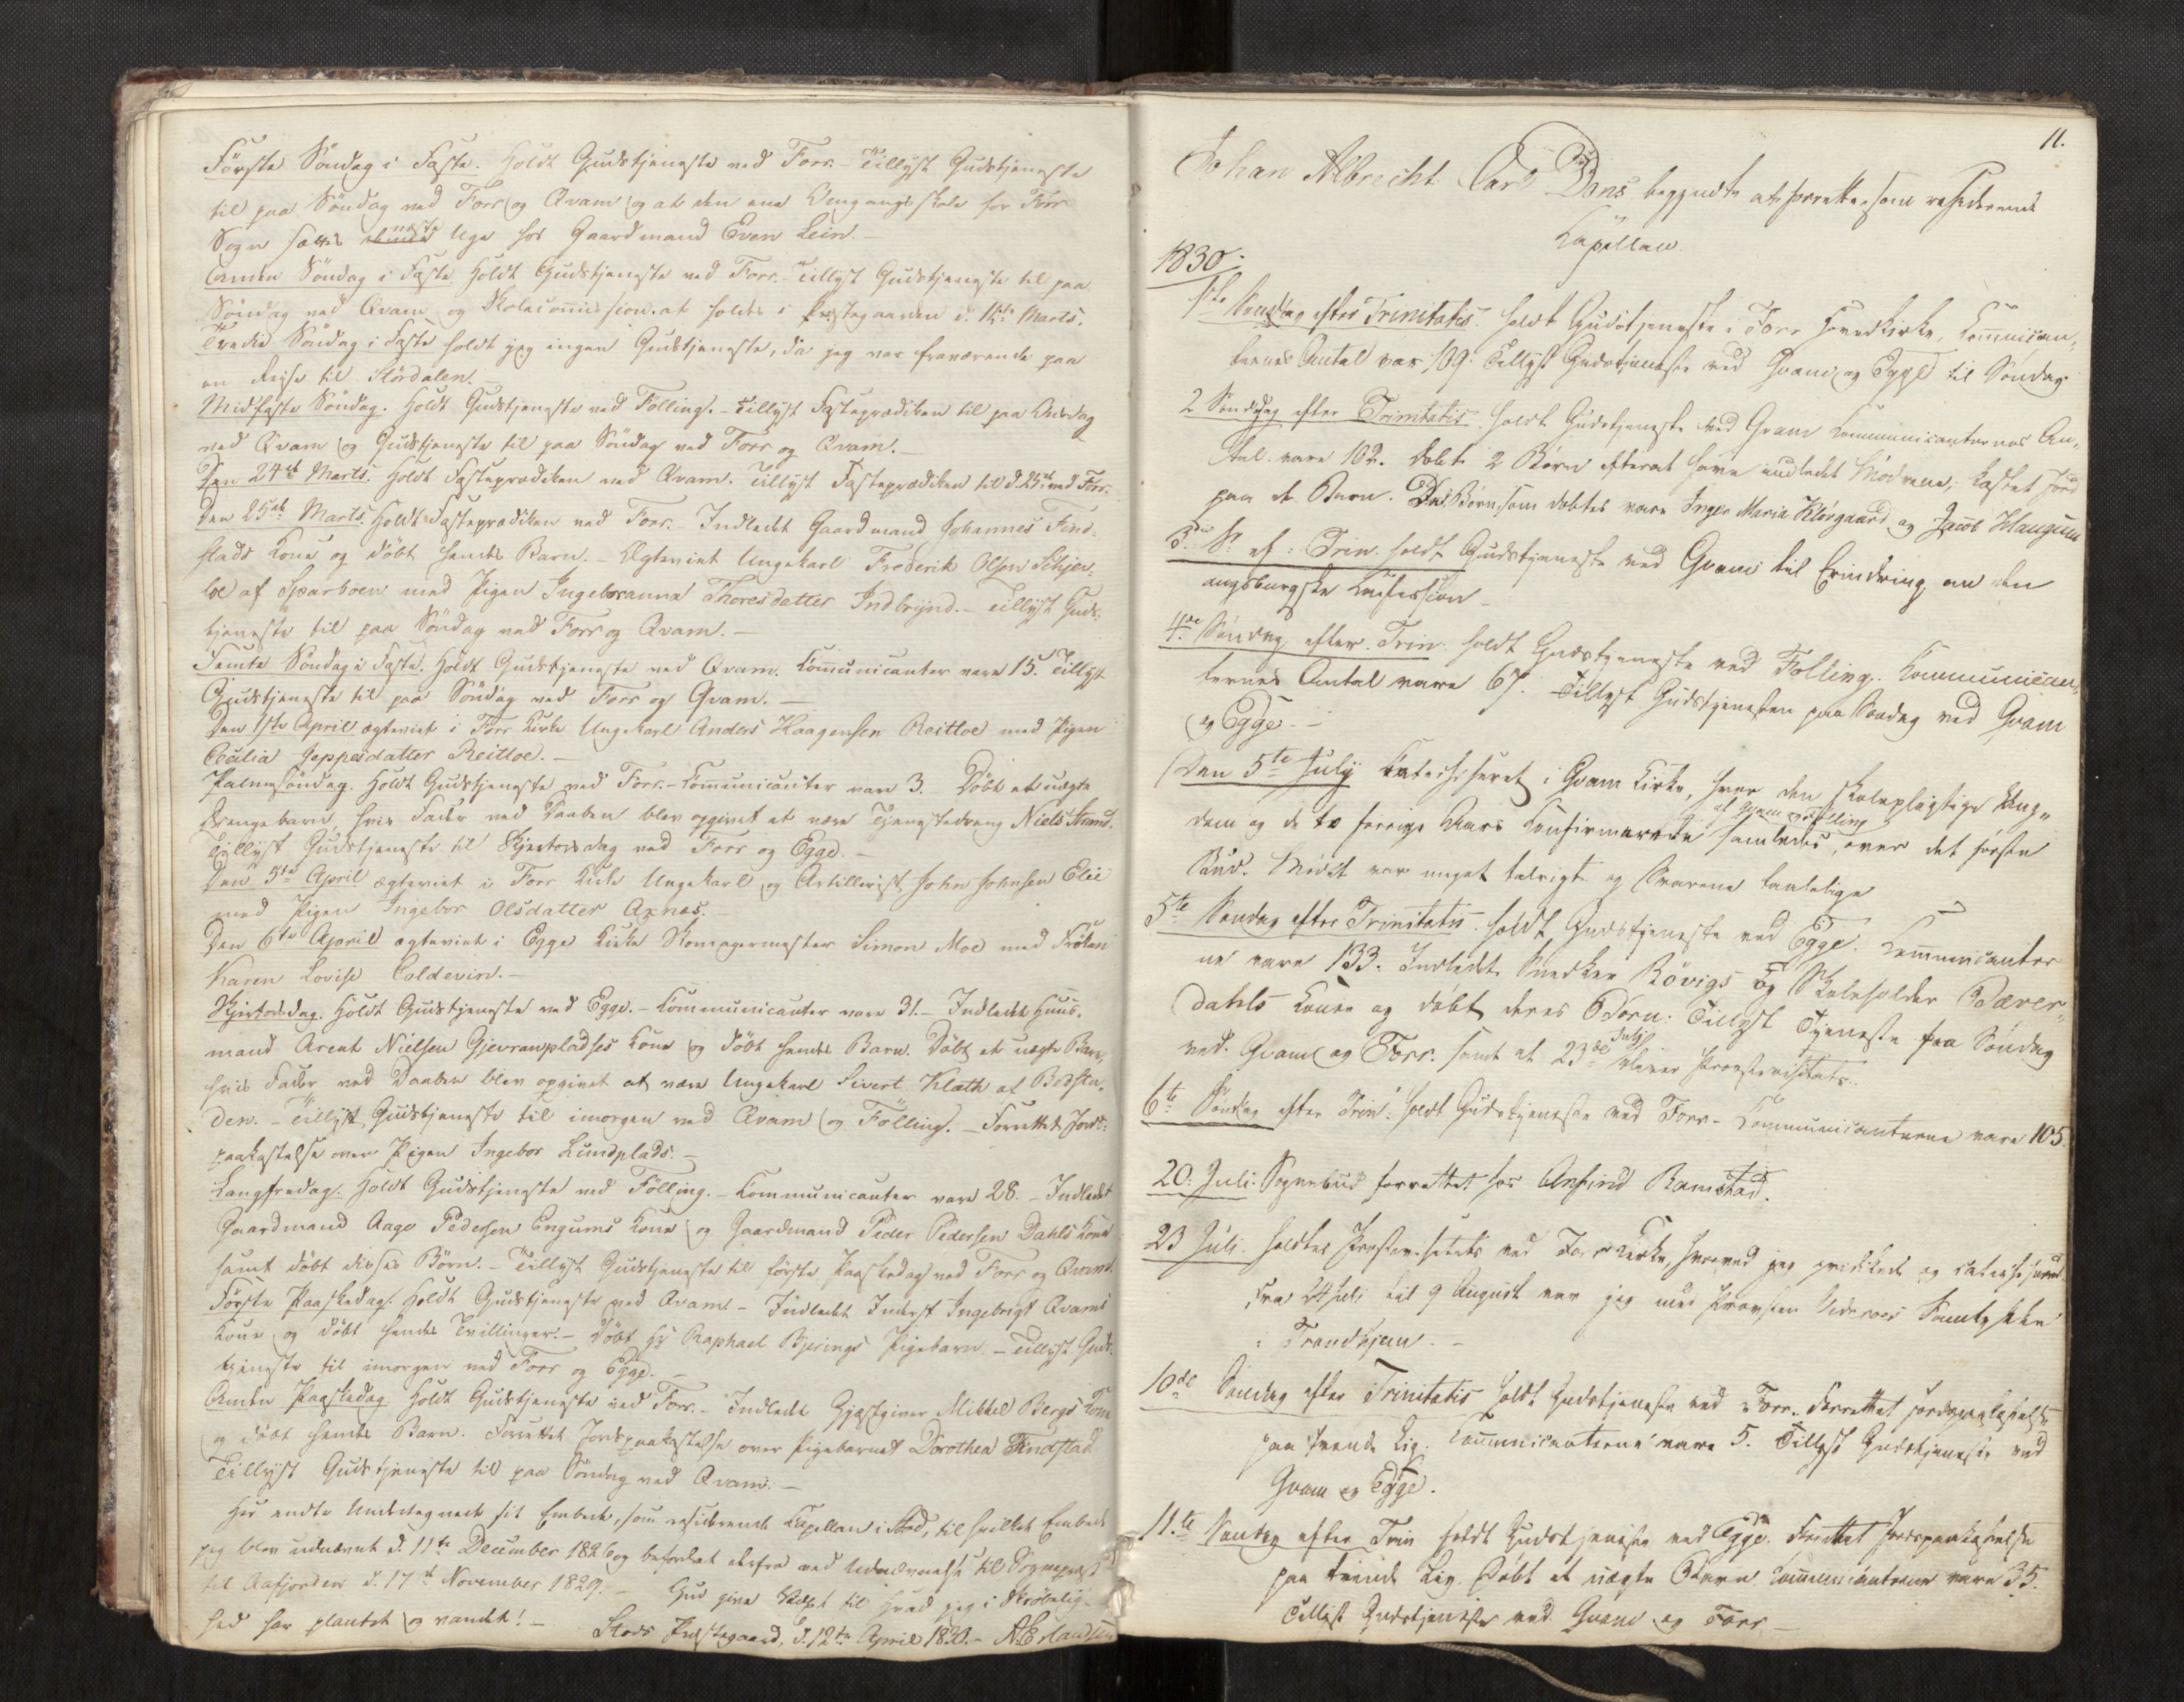 Förste Söndag i Faste. Holdt Gudstjeneste ved Forr. - Tillyst Gudstjeneste
til paa Söndag ved Forr og Qvam og at den ene Omgangsskole for Forr
Sogn sættes næste Uge hos Gaardmand Even Lein. -
Anden Söndag i Faste. Holdt Gudstjeneste ved Forr. - Tillyst Gudstjeneste til paa
Söndag ved Qvam og Skolecommission at holdes i Præstegaarden d. 15de Marts.
Tredie Söndag i Faste holdt jeg ingen Gudstjeneste, da jeg var fraværende paa
en Rejse til Stördalen.
Midfaste Söndag. Holdt Gudstjeneste ved Fölling. - Tillyst Fasteprædiken til paa Onsdag
ved Qvam og Gudstjeneste til paa Söndag ved Forr og Qvam. -
Den 24de Marts. Holdt Fasteprædiken ved Qvam. Tillyst Fasteprædiken til d. 25de ved Forr.
Den 25de Marts. Holdt Fasteprædiken ved Forr. - Indledt Gaardmand Johannes Find-
stads Kone og döbt hendes Barn. - Ægteviet Ungekarl Frederik Olsen Schjer-
loe af Sparboen med Pigen Ingeboranna Thoresdatter Indbrynd. - Tillyst Guds-
tjeneste til paa Söndag ved Forr og Qvam. -
Femte Söndag i Faste. Holdt Gudstjeneste ved Qvam. Communicanter vare 15. Tillyst
Gudstjeneste til paa Söndag ved Forr og Qvam. -
Den 1ste April ægteviet i Forr Kirke Ungekarl Anders Haagensen Reitloe med Pigen
Cecilia Jeppesdatter Reitloe. -
Palmesöndag. Holdt Gudstjeneste ved Forr. - Communicanter vare 3. Döbt et uægte
Drengebarn, hvis Fader ved Daaben blev opgivet at være Tjenestedreng Niels Strand.
Tillyst Gudstjeneste til Skjertorsdag ved Forr og Egge. -
Den 5te April ægteviet i Forr Kirke Ungekarl og Artillerist John Johnsen Elie
med Pigen Ingebor Olsdatter Axnæs. -
Den 6te April ægteviet i Egge Kirke Skomagermester Simon Moe med Fröken
Karen Lovise Coldevin. -
Skjertorsdag. Holdt Gudstjeneste ved Egge. - Communicanter vare 31. - Indledt Huus-
mand Arent Nielsen Gjevranpladses Kone og döbt hendes Barn. Döbt et uægte Barn,
hvis Fader ved Daaben blev opgivet at være Ungekarl Sivert Klæth af Bedsta-
den. - Tillyst Gudstjeneste til imorgen ved Qvam og Fölling. - Forrettet Jords-
paakastelse over Pigen Ingebor Lundplads. -
Langfredag. Holdt Gudstjeneste ved Fölling. - Communicanter vare 28. - Indledt
Gaardmand Aage Pedersen Engums Kone og Gaardmand Peder Pedersen Dahls Kone
samt döbt disses Börn. - Tillyst Gudstjeneste til förste Paaskedag ved Forr og Qvam.
Förste Paaskedag. Holdt Gudstjeneste ved Qvam. - Indledt Inderst Ingebrigt Qvams
Kone og döbt hendes Tvillinger. - Döbt Hr Raphael Bjerings Pigebarn. - Tillyst Guds-
tjeneste til imorgen ved Forr og Egge. -
Anden Paaskedag. Holdt Gudstjeneste ved Forr. - Indledt Gjæstgiver Mikkel Bergs Kone
og döbt hendes Barn. Forrettet Jordspaakastelse over Pigebarnet Dorothea Findstad.
Tillyst Gudstjeneste til paa Söndag ved Qvam. -
Her endte Undertegnede sit Embede, som residerende Capellan i Stod, til hvilket Embede
jeg blev udnævnt d. 11te December 1826 og befordret derfra ved Udnævnelse til Sognepræst
til Aafjorden d. 17de November 1829. - Gud give Væxt til hvad jeg i Skröbelig-
hed har plantet og vandet! - Stods Præstegaard, d. 12te April 1830. - A. Erlandsen
11.
Johan Albrecht Carl Dons begyndte at forrette som residerende
Capellan.
1830.
1ste Söndag efter Trinitatis. holdt Gudstjeneste i Forr Hovedkirke, Communican-
ternes Antal var 109. Tillyst Gudstjeneste ved Qvam og Egge til Söndag
2 Söndag efter Trinitatis. holdt Gudstjeneste ved Qvam Communicanternes An-
tal vare 102. Döbt 2 Börn efterat have indledt Mödrene, kastet Jord
paa et Barn. De Börn som döbtes vare Inger Maria Klösgaard og Jacob Haugum
3die S. ef: Trin. holdt Gudstjeneste ved Qvam til Erindring om den
augsburgske Confession -
4de Söndag efter Trin. holdt Gudstjeneste ved Folling. Communican-
ternes Antal vare 67. Tillyst Gudstjenesten paa Söndag ved Qvam
og Egge -
Den 5te July Catechiseret i Qvam Kirke, hvor den skolepligtige Ung-
dom og de to forrige Aars Confirmerede af Qvam og Folling samledes, over det förste
Bud. Mödet var meget talrigt og Svarene taalelige
5te Söndag efter Trinitatis. holdt Gudstjeneste ved Egge. Communicanter-
ne vare 133. Indledt Snedker Rövigs og Skoleholder Sæver-
dahls Koner og döbt deres Börn. Tillyst Tjeneste paa Söndag
ved Qvam og Forr. samt at 23de July bliver Provstevisitats.
6te Söndag efter Trin. holdt Gudstjeneste ved Forr - Communicanterne vare 105
20. Juli. Sognebud forrettet hos Anfind Ramstad.
23 Juli. holdtes Provstevisitats ved Forr Kirke, hvorved jeg prædikede og catechiserede.
Fra 24 Juli til 9 August var jeg med Provsten Samtykke
i Trondhjem. -
10de Söndag efter Trinitatis holdt Gudstjeneste ved Forr. Forrettet Jordspaakastelse
paa tvende Lig. Communicanterne vare 5. Tillyst Gudstjeneste ved
Qvam og Egge.
11.te Söndag efter Trin holdt Gudstjeneste ved Egge. Forrettet Jordspaakastelse
paa tvende Lig. Döbt et uægte Barn. Communicanterne vare 35.
Tillyst Gudstjeneste ved Qvam og Forr -